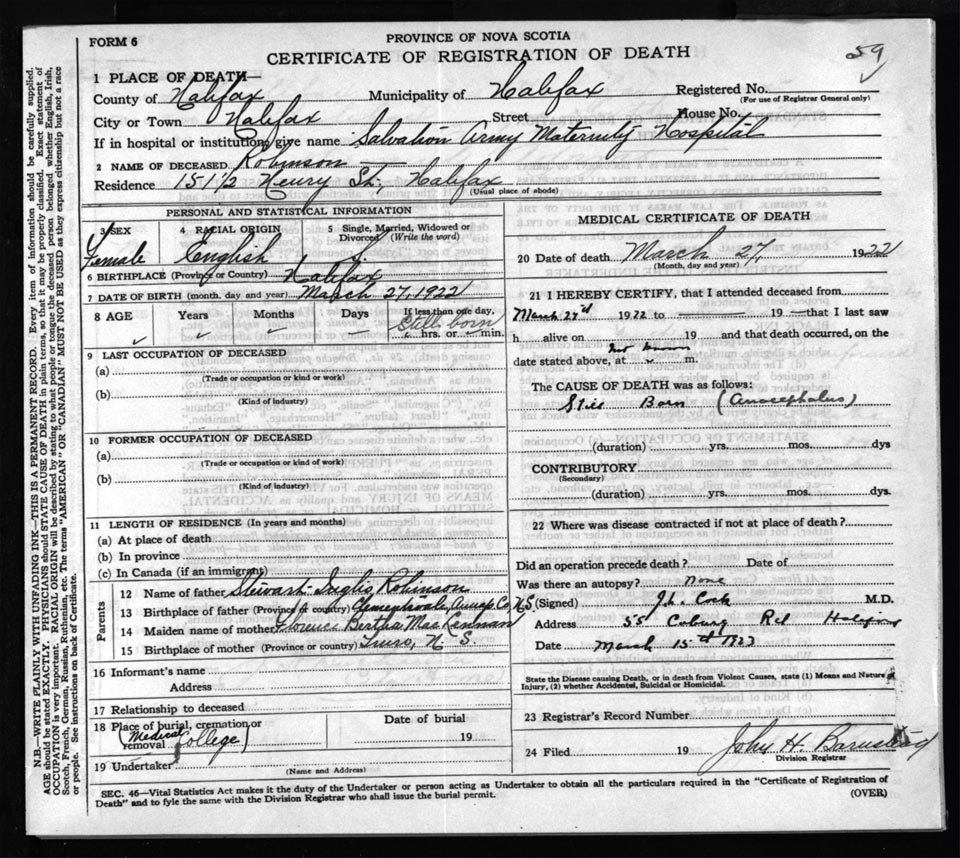 FORM 6
PROVINCE OF NOVA SCOTIA
CERTIFICATE OF REGISTRATION OF DEATH
59
1 PLACE OF DEATH—
County of Halifax Municipality of Halifax Registered No.
(For use of Registrar General only)
City or Town Halifax Street House No.
If in hospital or institution, give name Salvation Army Maternity Hospital
2 NAME OF DECEASED Robinson
Residence 151½ Henry St., Halifax
(Usual place of abode)
PERSONAL AND STATISTICAL INFORMATION
3 SEX 4 RACIAL ORIGIN 5 Single, Married, Widowed or Divorced (Write the word)
Female English S.
6 BIRTHPLACE (Province or Country) Halifax
7 DATE OF BIRTH (month, day and year) March 27, 1922
8 AGE Years Months Days If less than one day,
Still born
hrs. or min.
9 LAST OCCUPATION OF DECEASED
(a)
(Trade or occupation or kind or work)
(b)
(Kind of industry)
10 FORMER OCCUPATION OF DECEASED
(a)
(Trade or occupation or kind of work)
(b)
(Kind of industry)
11 LENGTH OF RESIDENCE (In years and months)
(a) At place of death
(b) In province
(c) In Canada (if an immigrant)
Parents
12 Name of father Stewart Inglis Robinson
13 Birthplace of father (Province or country) Annap. Co. N.S.
14 Maiden name of mother Florence Bertha MacKennan
15 Birthplace of mother (Province or country) Truro, N. S.
16 Informant's name
Address
17 Relationship to deceased
18 Place of burial, cremation or removal (Medical College) Date of burial 19
19 Undertaker
(Name and Address)
MEDICAL CERTIFICATE OF DEATH
20 Date of death March 27, 1922
(Month, day and year)
21 I HEREBY CERTIFY, that I attended deceased from
March 27th 1922 to 19 that I last saw
h alive on 19 and that death occurred, on the
date stated above, at m.
The CAUSE OF DEATH was as follows:
Still Born (Anocephalus)
(duration) yrs. mos. dys
CONTRIBUTORY
(Secondary)
(duration) yrs. mos. dys.
22 Where was disease contracted if not at place of death?
Did an operation precede death? Date of
Was there an autopsy? None
(Signed) M.D.
Address 55 Coburg Rd Halifax
Date March 15th 1923
State the Disease causing Death, or in death from Violent Causes, state (1) Means and Nature of
Injury, (2) whether Accidental, Suicidal or Homicidal.
23 Registrar's Record Number
24 Filed 19 John H.
Division Registrar
SEC. 46—Vital Statistics Act makes it the duty of the Undertaker or person acting as Undertaker to obtain all the particulars required in the "Certificate of Registration of
Death" and to fyle the same with the Division Registrar who shall issue the burial permit. (OVER)
N.B.—WRITE PLAINLY WITH UNFADING INK—THIS IS A PERMANENT RECORD. Every item of information should be carefully supplied.
AGE should be stated EXACTLY. PHYSICIANS should STATE CAUSE OF DEATH in plain terms, so that it may be properly classified. Exact statement of
OCCUPATION is very important. RACIAL ORIGIN will be described by stating to what people or tongue the deceased person belonged whether English, Irish,
Scotch, French, German, Russian, Ruthenian, etc. The terms "AMERICAN" OR "CANADIAN" MUST NOT BE USED as they express citizenship but not a race
or people. See instructions on back of Certificate.